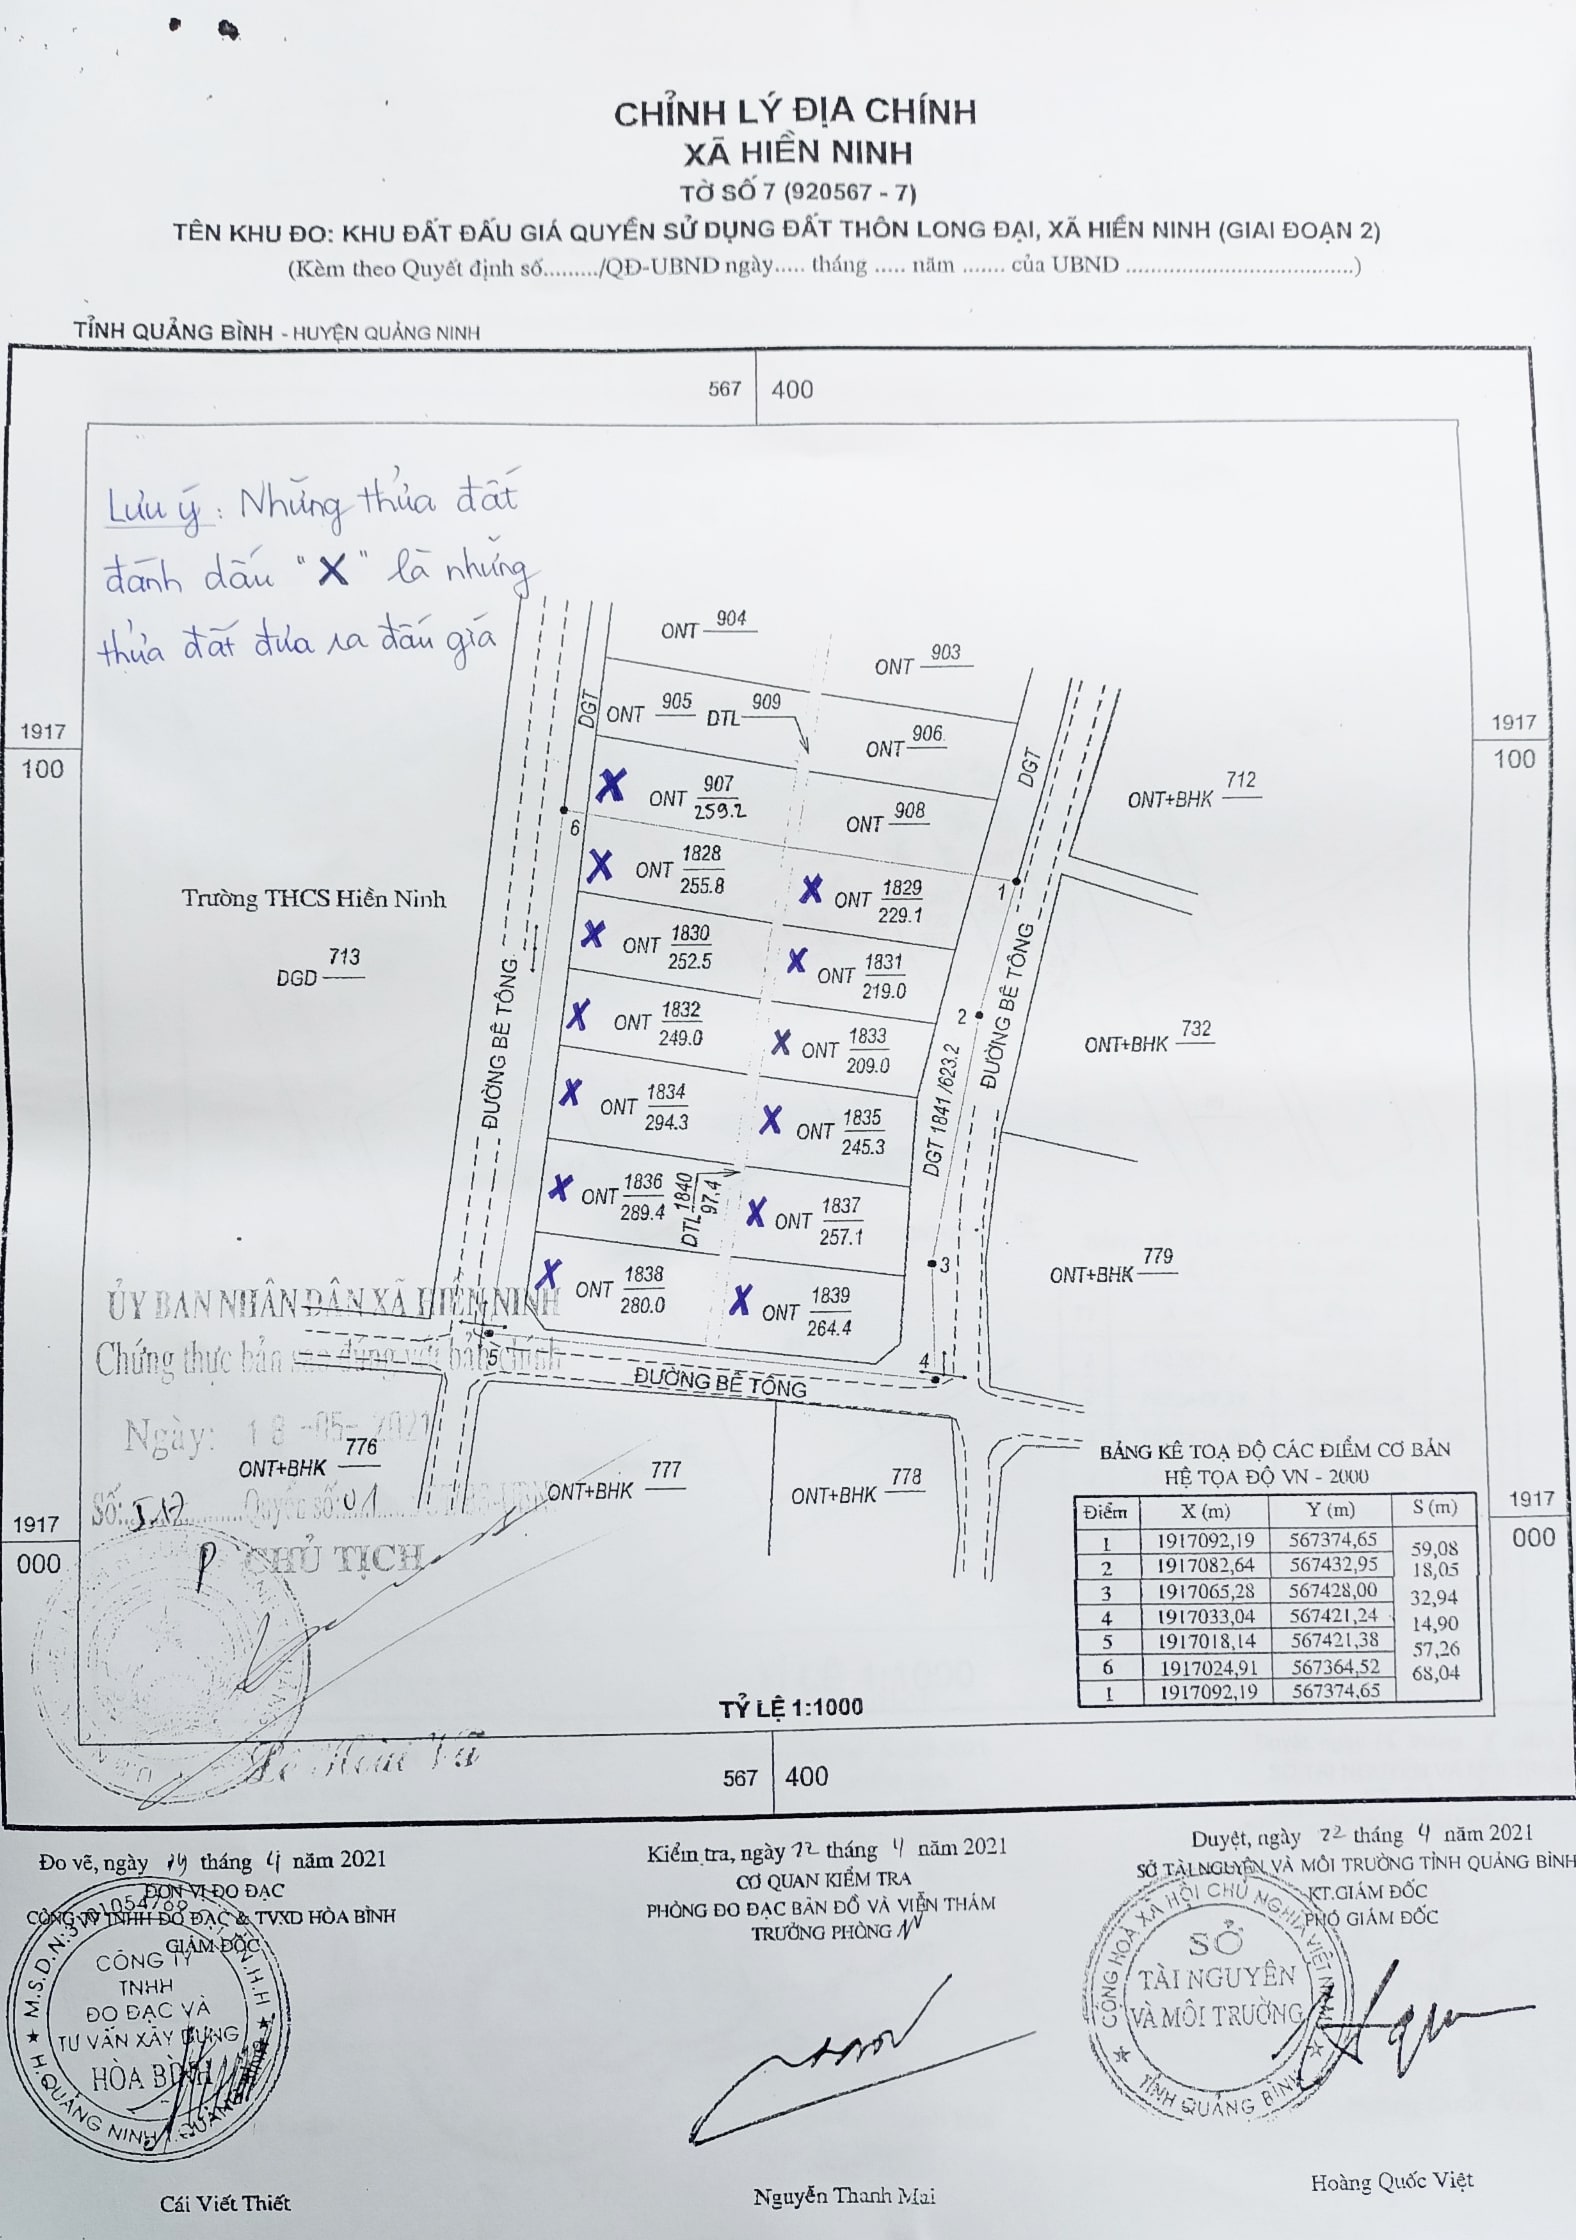 CHỈNH LÝ ĐỊA CHÍNH
XÃ HIỀN NINH
TỜ SỐ 7 (920567 - 7)
TÊN KHU ĐO: KHU ĐẤT ĐẤU GIÁ QUYỀN SỬ DỤNG ĐẤT THÔN LONG ĐẠI, XÃ HIỀN NINH (GIAI ĐOẠN 2)
(Kèm theo Quyết định số........./QĐ-UBND ngày..... tháng ..... năm ....... của UBND ....................................)
TỈNH QUẢNG BÌNH - HUYỆN QUẢNG NINH
567 400
Lưu ý: Những thửa đất
đánh dấu "X" là những
thửa đất đưa ra đấu giá
ONT 904
ONT 903
DGT
ONT 905 DTL 909
ONT 906
1917
100
1917
100
DGT
X ONT 907
259.2
ONT 908
ONT+BHK 712
6
X ONT 1828
255.8
1
X ONT 1829
229.1
Trường THCS Hiền Ninh
DGD 713
X ONT 1830
252.5
X ONT 1831
219.0
ĐƯỜNG BÊ TÔNG
ĐƯỜNG BÊ TÔNG
2
X ONT 1832
249.0
X ONT 1833
209.0
ONT+BHK 732
DGT 1841/623.2
X ONT 1834
294.3
X ONT 1835
245.3
X ONT 1836
289.4
DTL 1840
97.4
X ONT 1837
257.1
3
ONT+BHK 779
X ONT 1838
280.0
X ONT 1839
264.4
ỦY BAN NHÂN DÂN XÃ HIỀN NINH
Chứng thực bản sao đúng với bản chính
5
4
ĐƯỜNG BÊ TÔNG
Ngày: 18 -05- 2021
ONT+BHK 776
ONT+BHK 777
ONT+BHK 778
Quyển số: 01
CHỦ TỊCH
1917
000
1917
000
BẢNG KÊ TOẠ ĐỘ CÁC ĐIỂM CƠ BẢN
HỆ TỌA ĐỘ VN - 2000
Điểm X (m) Y (m) S (m)
1 1917092,19 567374,65
59,08
2 1917082,64 567432,95
18,05
3 1917065,28 567428,00
32,94
4 1917033,04 567421,24
14,90
5 1917018,14 567421,38
57,26
6 1917024,91 567364,52
68,04
1 1917092,19 567374,65
TỶ LỆ 1:1000
567 400
Đo vẽ, ngày 14 tháng 4 năm 2021
ĐƠN VỊ ĐO ĐẠC
CÔNG TY TNHH ĐO ĐẠC & TVXD HÒA BÌNH
GIÁM ĐỐC
CÔNG TY
TNHH
ĐO ĐẠC VÀ
TƯ VẤN XÂY DỰNG
HÒA BÌNH
Cái Viết Thiết
Kiểm tra, ngày 22 tháng 4 năm 2021
CƠ QUAN KIỂM TRA
PHÒNG ĐO ĐẠC BẢN ĐỒ VÀ VIỄN THÁM
TRƯỞNG PHÒNG
Nguyễn Thanh Mai
Duyệt, ngày 22 tháng 4 năm 2021
SỞ TÀI NGUYÊN VÀ MÔI TRƯỜNG TỈNH QUẢNG BÌNH
KT.GIÁM ĐỐC
PHÓ GIÁM ĐỐC
CỘNG HOÀ XÃ HỘI CHỦ NGHĨA VIỆT NAM
SỞ
TÀI NGUYÊN
VÀ MÔI TRƯỜNG
TỈNH QUẢNG BÌNH
Hoàng Quốc Việt